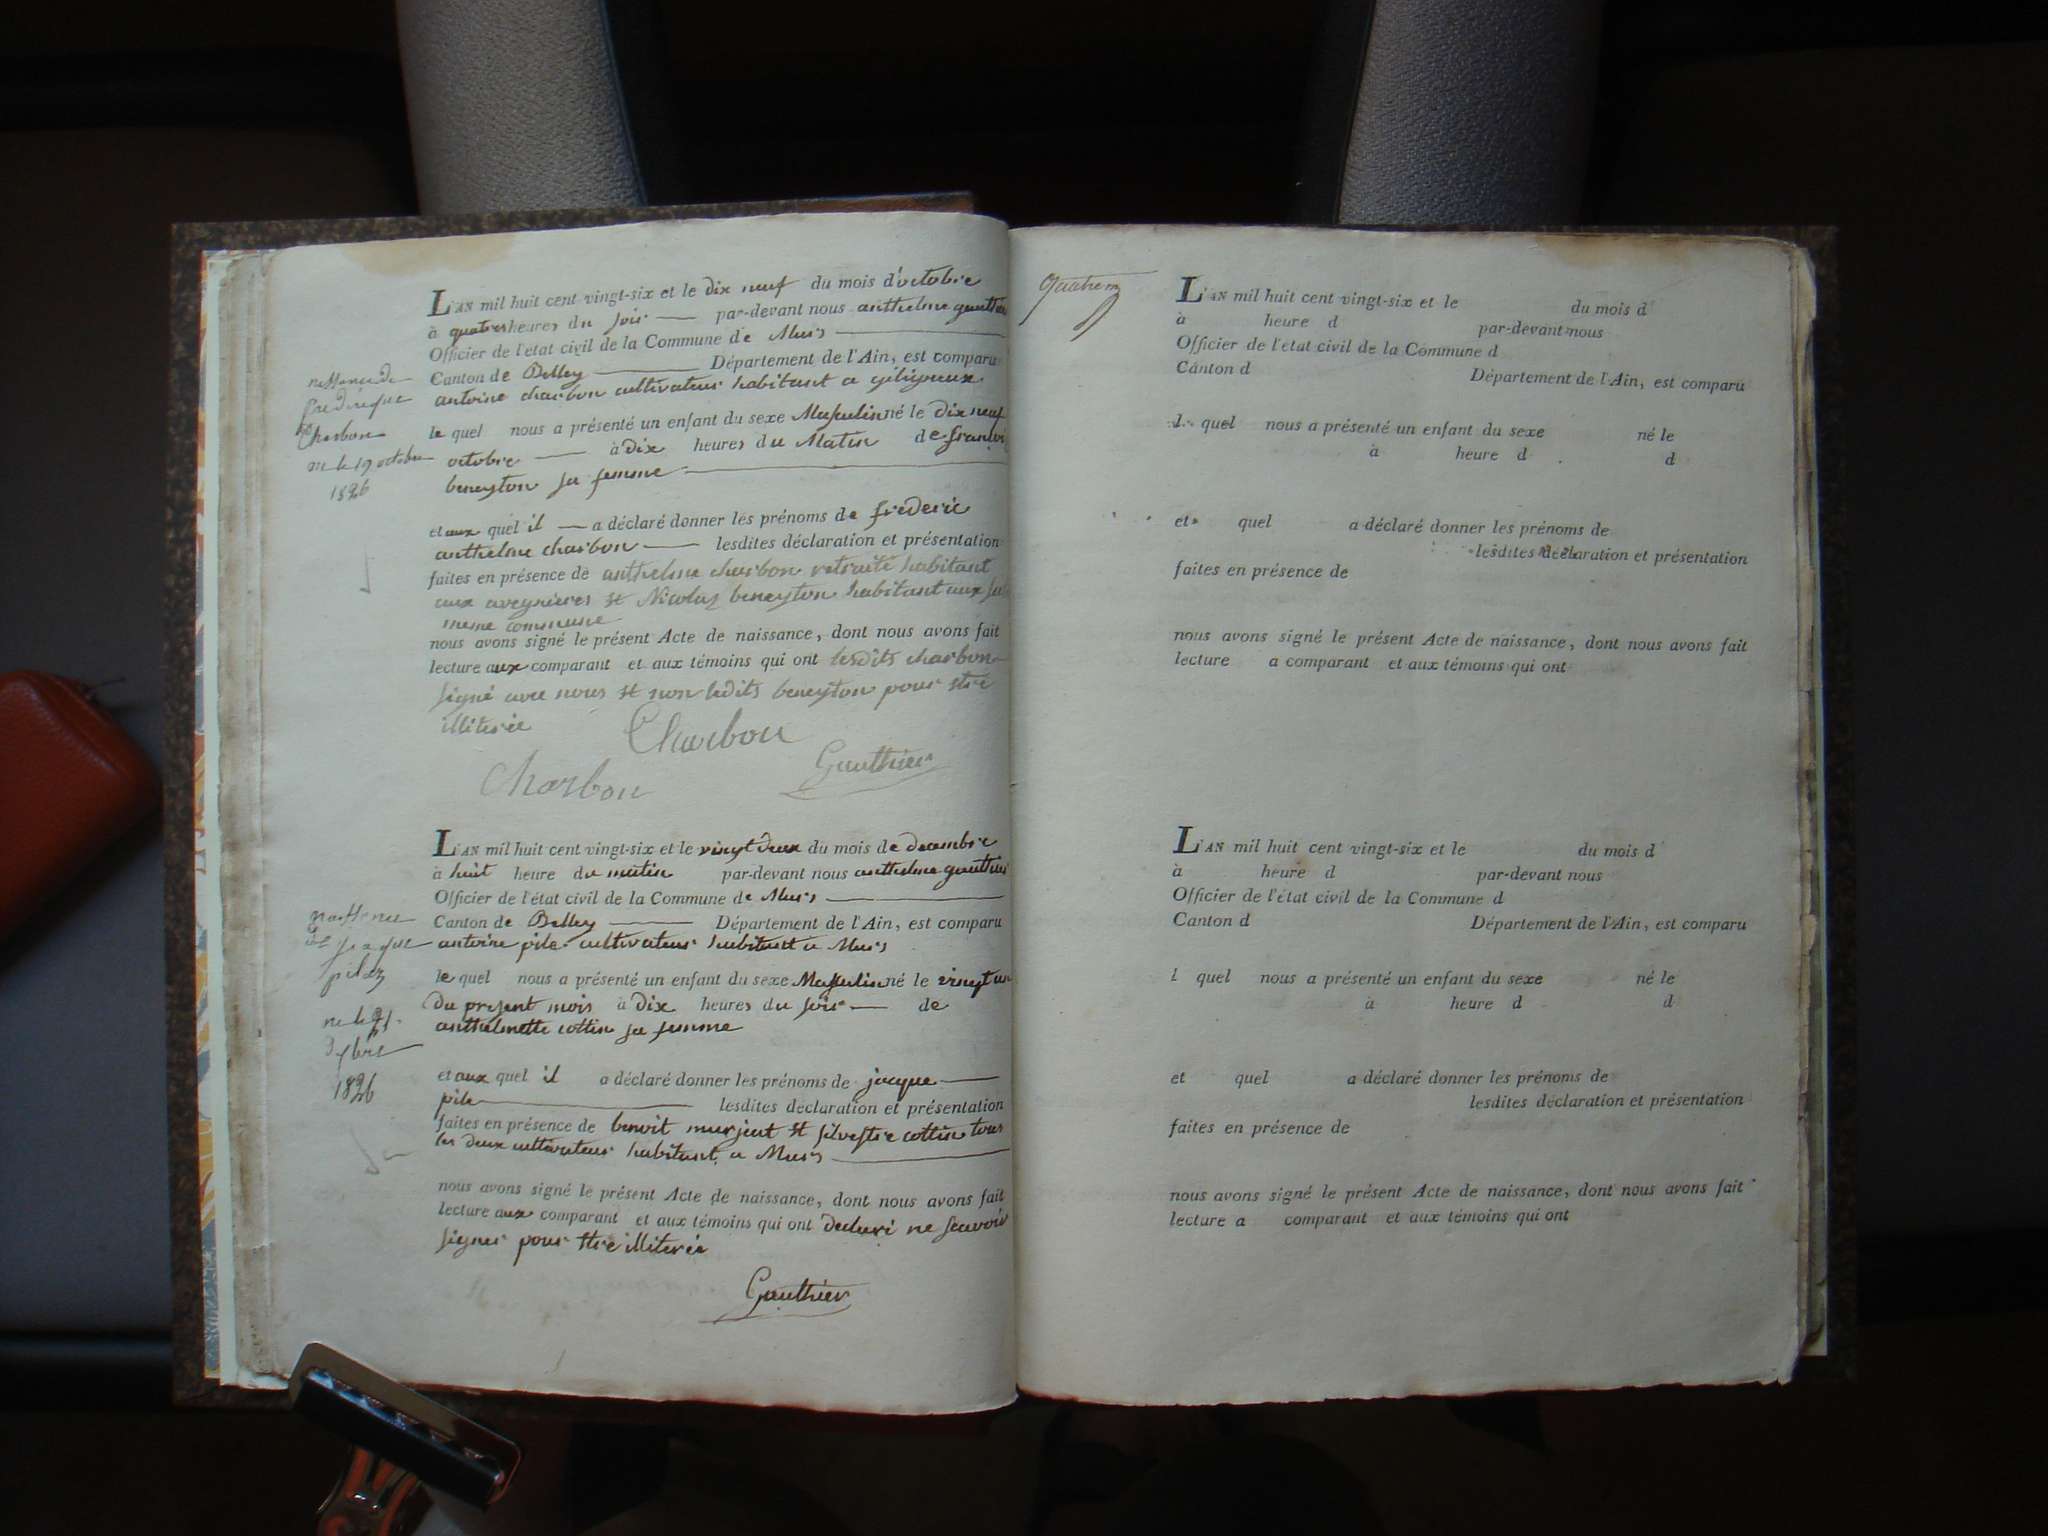 L'AN mil huit cent vingt-six et le dix neuf du mois d'octobre
à quatres heures du soir par-devant nous anthelme gauthier
Officier de l'état civil de la Commune de Murs
Canton de Belley Département de l'Ain, est comparu
antoine charbon cultivateur habitant a
le quel nous a présenté un enfant du sexe Masculin né le dix neuf
octobre à dix heures du Matin de
beneyton sa femme
et aux quel il a déclaré donner les prénoms de frederic
anthelme charbon lesdites déclaration et présentation
faites en présence de anthelme charbon retraité habitant
aux aveynieres et Nicolas beneyton habitant aux
meme commune
nous avons signé le présent Acte de naissance, dont nous avons fait
lecture aux comparant et aux témoins qui ont lesdits charbon
signé avec nous et non ledits beneyton pour etre
illiterée
Charbon
Gauthier
Charbon
naissance de
frederique
Charbon
ne le 19 octobre
1826
L'AN mil huit cent vingt-six et le vingt deux du mois de decembre
à huit heure du matin par-devant nous anthelme gauthier
Officier de l'état civil de la Commune de Murs
Canton de Belley Département de l'Ain, est comparu
antoine pile cultivateur habitant a Murs
le quel nous a présenté un enfant du sexe Masculin né le vingt un
du present mois à dix heures du soir de
anthelmette cottin sa femme
et aux quel il a déclaré donner les prénoms de jacque
pile lesdites déclaration et présentation
faites en présence de benoit murjeut et silvestre cottin tous
les deux cultivateur habitant a Murs
nous avons signé le présent Acte de naissance, dont nous avons fait
lecture aux comparant et aux témoins qui ont declaré ne scavoir
signer pour etre illiterée
Gauthier
naissance
de jaque
pilaz
ne le 21
1826
L'AN mil huit cent vingt-six et le du mois d
à heure d par-devant nous
Officier de l'état civil de la Commune d
Canton d Département de l'Ain, est comparu
l quel nous a présenté un enfant du sexe né le
à heure d d
et quel a déclaré donner les prénoms de
lesdites déclaration et présentation
faites en présence de
nous avons signé le présent Acte de naissance, dont nous avons fait
lecture a comparant et aux témoins qui ont
L'AN mil huit cent vingt-six et le du mois d
à heure d par-devant nous
Officier de l'état civil de la Commune d
Canton d Département de l'Ain, est comparu
l quel nous a présenté un enfant du sexe né le
à heure d d
et quel a déclaré donner les prénoms de
lesdites déclaration et présentation
faites en présence de
nous avons signé le présent Acte de naissance, dont nous avons fait
lecture a comparant et aux témoins qui ont